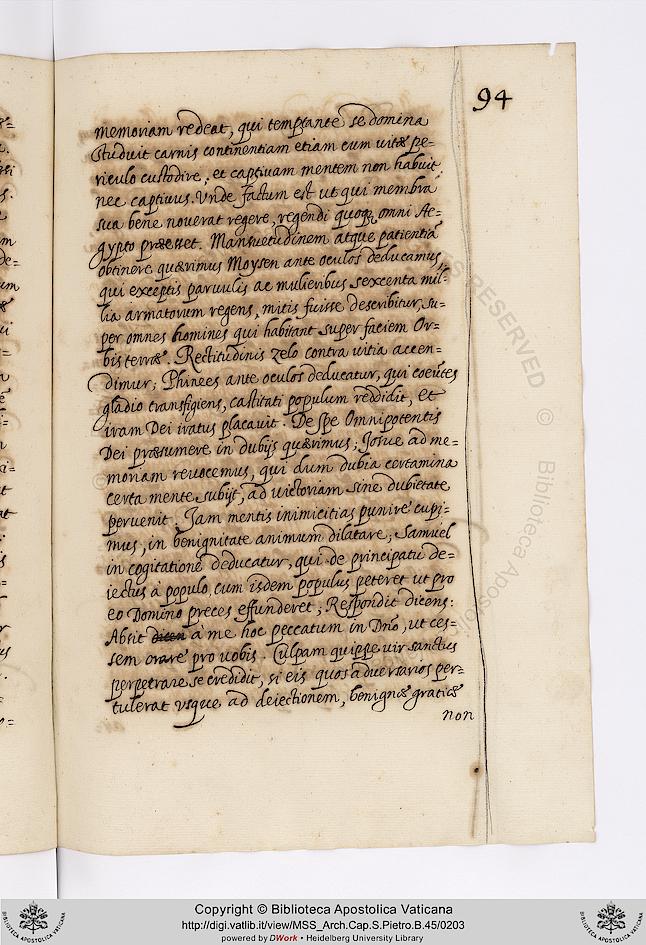 94
memoriam redeat, qui temptante se domina
studuit carnis continentiam etiam cum vitæ pe-
riculo custodire, et captiuam mentem non habuit
nec captiuus. Vnde factum est ut qui membra
sua bene nouerat regere, regendi quoq; omni Ae-
gypto præesset. Mansuetudinem atque patientiā
obtinere quærimus Moysen ante oculos deducamus,
qui exceptis paruulis ac mulieribus sexcenta mil-
lia armatorum regens, mitis fuisse describitur, su-
per omnes homines qui habitant super faciem Or-
bis terræ. Rectitudinis zelo contra uitia accen-
dimur; Phinees ante oculos deducatur, qui coeūtes
gladio transfigiens, castitati populum reddidit, et
iram Dei iratus placauit. De spe Omnipotentis
Dei præsumere in dubijs quærimus; Josue ad me-
moriam reuocemus, qui dum dubia certamina
certa mente subijt, ad uictoriam sine dubietate
peruenit. Jam mentis inimicitias punire cupi-
mus, in benignitate animum dilatare; Samuel
in cogitationē deducatur, qui de principatu de-
iectus à populo, cum isdem populus peteret ut pro
eo Domino preces effunderet; Respondit dicens:
Absit dicen à me hoc peccatum in Dn̄o, ut ces-
sem orare pro uobis. Culpam quippe vir sanctus
perpetrare se credidit, si eis quos aduersarios per-
tulerat vsque ad deiectionem, benignæ gratiæ
non
RESERVED © Biblioteca Apostolica
Copyright © Biblioteca Apostolica Vaticana
http://digi.vatlib.it/view/MSS_Arch.Cap.S.Pietro.B.45/0203
powered by DWork • Heidelberg University Library